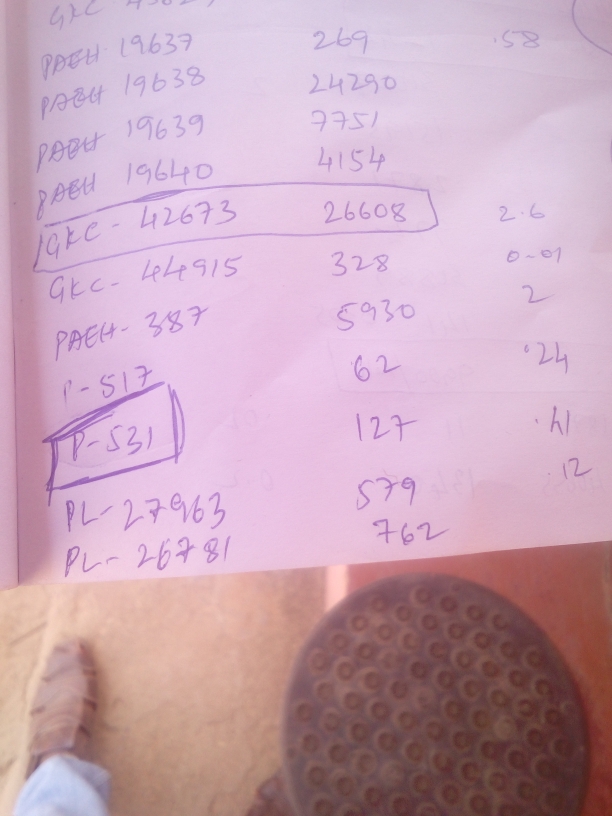 GKC
PAEH 19637 269 .58
PAEH 19638 24290
PAEH 19639 7751
PAEH 19640 4154
GKC - 42673 26608 2.6
GKC - 44915 328 0-01
PAEH - 387 5930 2
P-517 62 .24
P-531 127 .41
PL-27963 579 .12
PL-26781 762